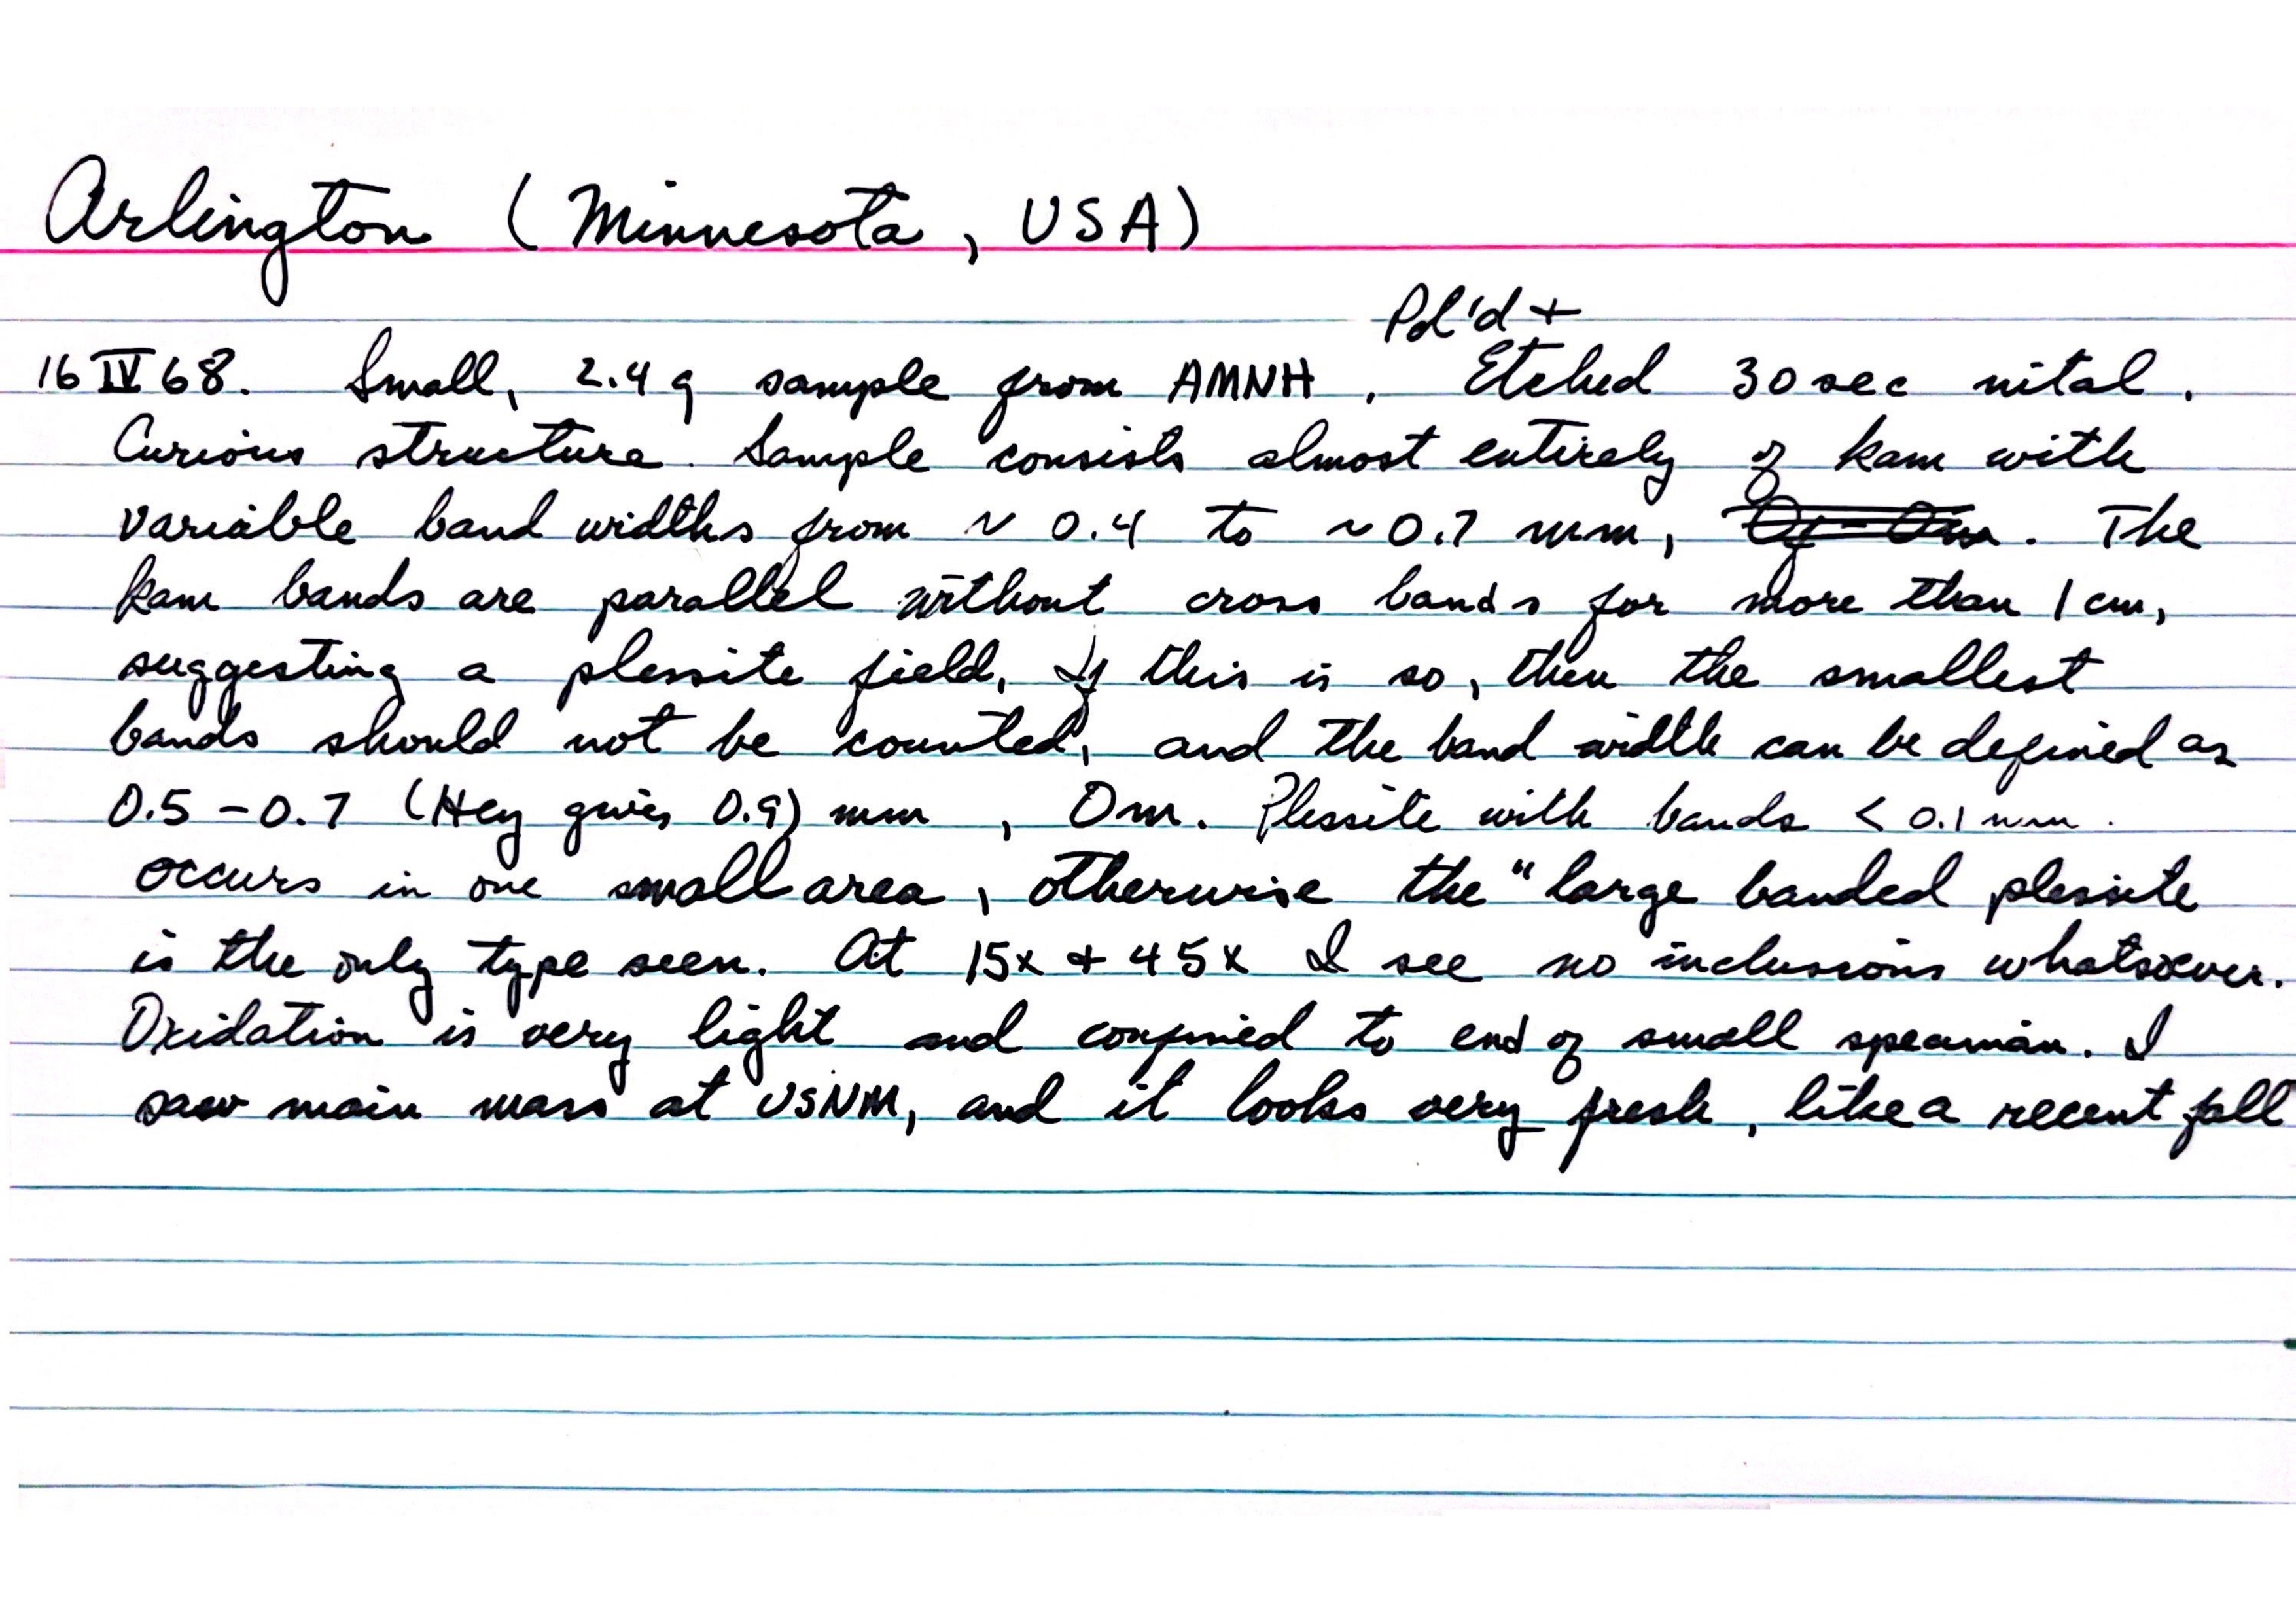 Arlington (Minnesota, USA)
Pol'd +
16 IV 68. Small, 2.4 g sample from AMNH. Etched 30 sec nital.
Curious structure. Sample consists almost entirely of kam with
variable band widths from ~ 0.4 to ~0.7 mm, Of - Om. The
kam bands are parallel without cross bands for more than 1 cm,
suggesting a plessite field. If this is so, then the smallest
bands should not be counted, and the band width can be defined as
0.5 - 0.7 (Hey gives 0.9) mm, Om. Plessite with bands < 0.1 mm.
occurs in one small area, otherwise the "large banded plessite
is the only type seen. At 15x + 45x I see no inclusions whatsoever.
Oxidation is very light and confined to end of small speciman. I
saw main mass at USNM, and it looks very fresh, like a recent fall